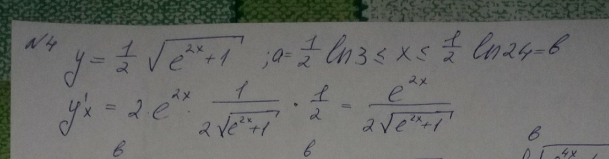 №4 y = 1/2 √(e^{2x}+1) ; a = 1/2 ln3 ≤ x ≤ 1/2 ln24 = в
y'x = 2 e^{2x} · 1/(2√(e^{2x}+1)) · 1/2 = e^{2x}/(2√(e^{2x}+1))
в в в √e^{4x}